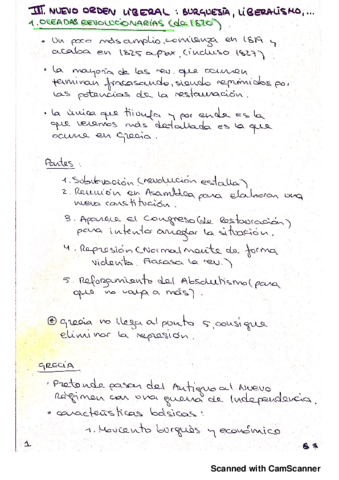 III. NUEVO ORDEN LIBERAL: BURGUESÍA, LIBERALISMO,...
1. OLEADAS REVOLUCIONARIAS (de 1820)
• Un poco más amplio, comienza en 1819 y
acaba en 1825 aprox. (incluso 1827)
• La mayoría de las rev. que ocurren
terminan fracasando, siendo reprimidas por
las potencias de la restauración.
• La única que triunfa y por ende es la
que veremos más detallada es la que
ocurre en Grecia.
Partes:
1. Sublevación (revolución estalla)
2. Reunión en Asamblea para elaborar una
nueva constitución.
3. Aparece el Congreso (de Restauración)
para intentar arreglar la situación.
4. Represión (Normalmente de forma
violenta. Fracasa la rev.)
5. Reforzamiento del Absolutismo (para
que no vaya a más).
Grecia no llega al punto 5, consigue
eliminar la represión.
GRECIA
• Pretende pasar del Antiguo al Nuevo
Régimen con una guerra de Independencia.
• Características básicas:
1. Movimiento burgués y económico
1
Scanned with CamScanner